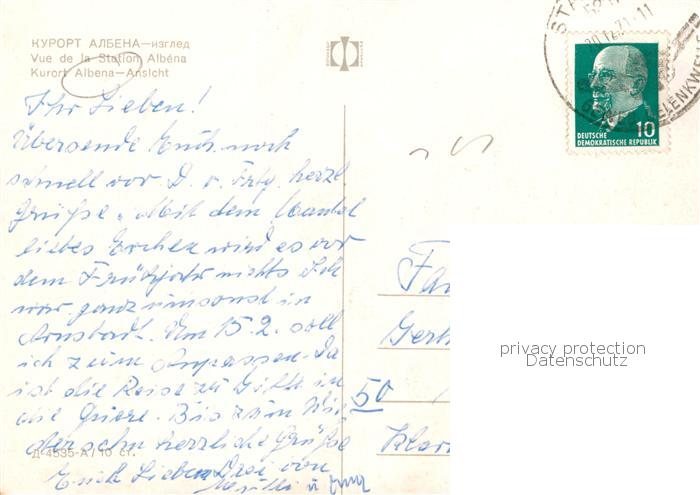 КУРОРТ АЛБЕНА—изглед
Vue de la Station Albéna
Kurort Albena—Ansicht
Ihr Lieben!
Übersende Euch noch
schnell vor D. v. herzl
Grüße. Mit dem Mantel
liebes wird es vor
dem Frühjahr nichts Ich
war ganz umsonst in
Arnstadt. Am 15.2. soll
ich zum Anpassen. Da
ist die Reise zu in
die. Bis zum Wie
dersehn herzliche Grüße
Euch Lieben Drei von
u
Д-4535-А/10 ст.
DEUTSCHE
DEMOKRATISCHE REPUBLIK
10
20.12.71-11
Fa
Gerh
50
Klar
privacy protection
Datenschutz